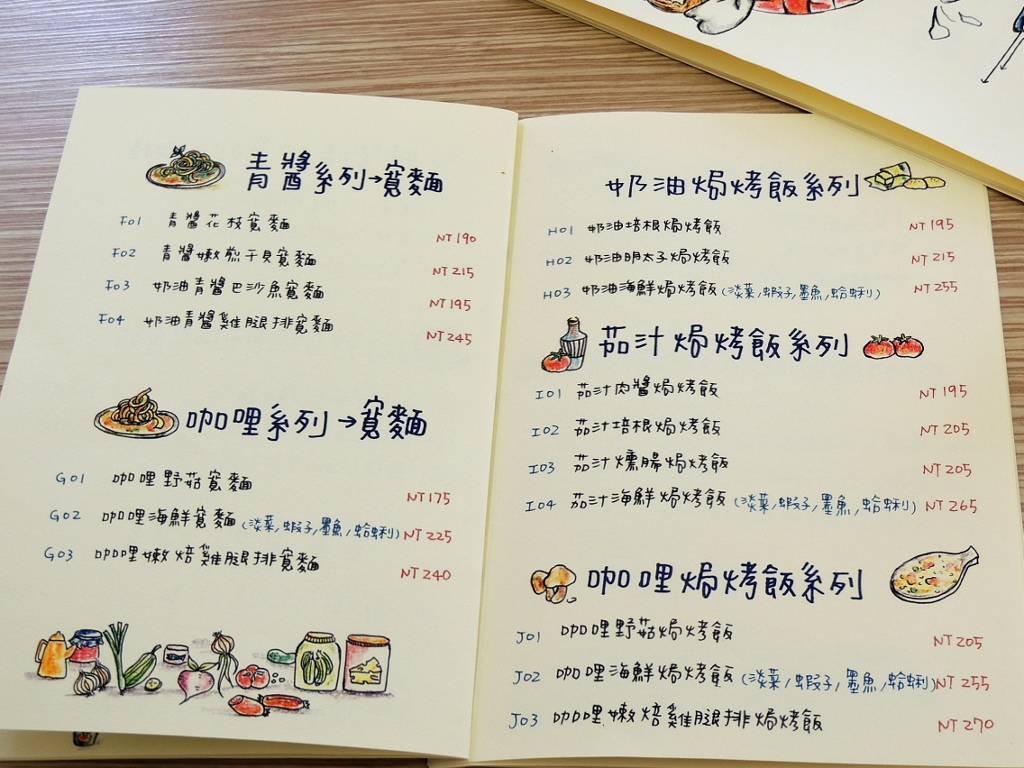 青醬系列→寬麵
F01 青醬花枝寬麵 NT 190
F02 青醬嫩煎干貝寬麵 NT 215
F03 奶油青醬巴沙魚寬麵 NT 195
F04 奶油青醬雞腿排寬麵 NT 245
咖哩系列→寬麵
G01 咖哩野菇寬麵 NT 175
G02 咖哩海鮮寬麵(淡菜,蝦子,墨魚,蛤蜊) NT 225
G03 咖哩嫩焙雞腿排寬麵 NT 240
奶油焗烤飯系列
H01 奶油培根焗烤飯 NT 195
H02 奶油明太子焗烤飯 NT 215
H03 奶油海鮮焗烤飯(淡菜,蝦子,墨魚,蛤蜊) NT 255
茄汁焗烤飯系列
I01 茄汁肉醬焗烤飯 NT 195
I02 茄汁培根焗烤飯 NT 205
I03 茄汁燻腸焗烤飯 NT 205
I04 茄汁海鮮焗烤飯(淡菜,蝦子,墨魚,蛤蜊) NT 265
咖哩焗烤飯系列
J01 咖哩野菇焗烤飯 NT 205
J02 咖哩海鮮焗烤飯(淡菜,蝦子,墨魚,蛤蜊) NT 255
J03 咖哩嫩焙雞腿排焗烤飯 NT 270